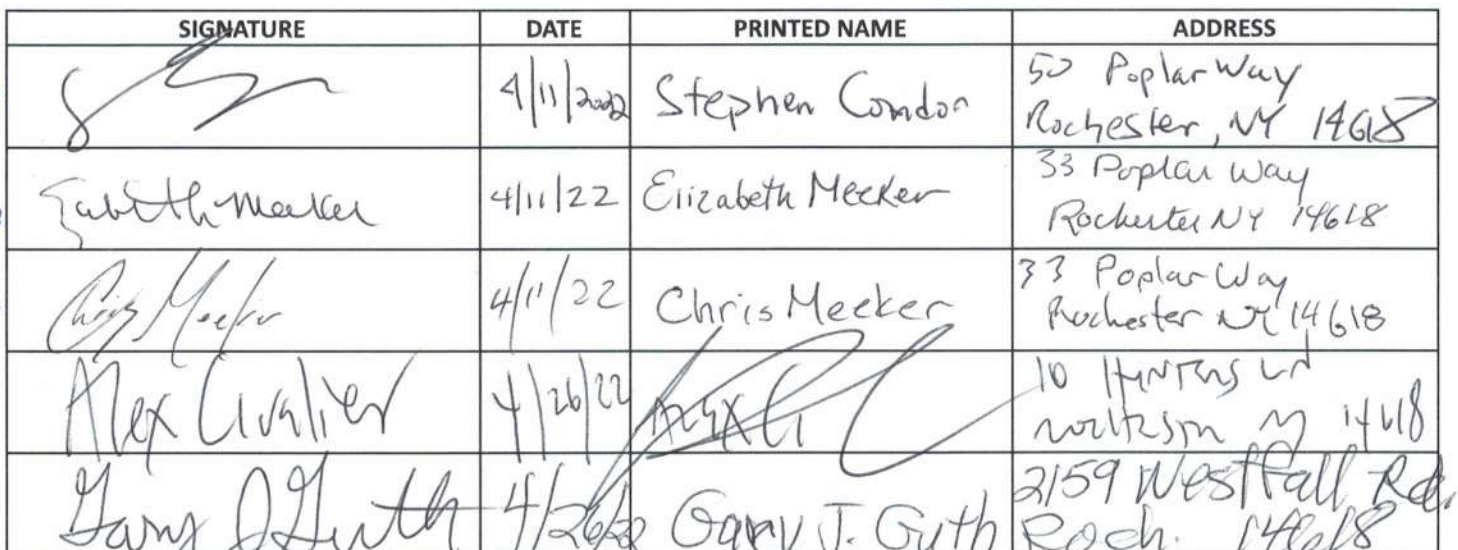 SIGNATURE DATE PRINTED NAME ADDRESS
4/11/2022 Stephen Condon 50 Poplar Way
Rochester, NY 14618
Elizabeth Meeker 4/11/22 Elizabeth Meeker 33 Poplar Way
Rochester NY 14618
Chris Meeker 4/11/22 Chris Meeker 33 Poplar Way
Rochester NY 14618
Alex Civalier 4/26/22 Alex 10 Hunters Ln
14618
Gary J Guth 4/26/22 Gary J. Guth 2159 Westfall Rd.
Roch. 14618